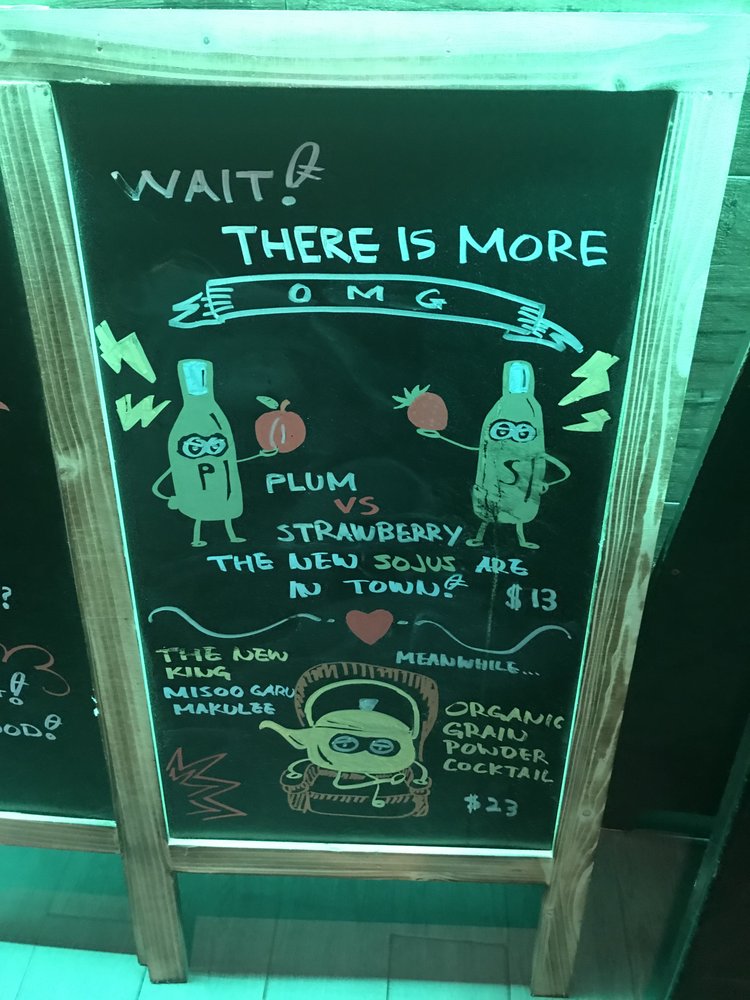 WAIT!
THERE IS MORE
OMG
P
S
PLUM
VS
STRAWBERRY
THE NEW SOJUS ARE
IN TOWN!
$13
THE NEW
KING
MISOO GARU
MAKULEE
MEANWHILE...
ORGANIC
GRAIN
POWDER
COCKTAIL
$23